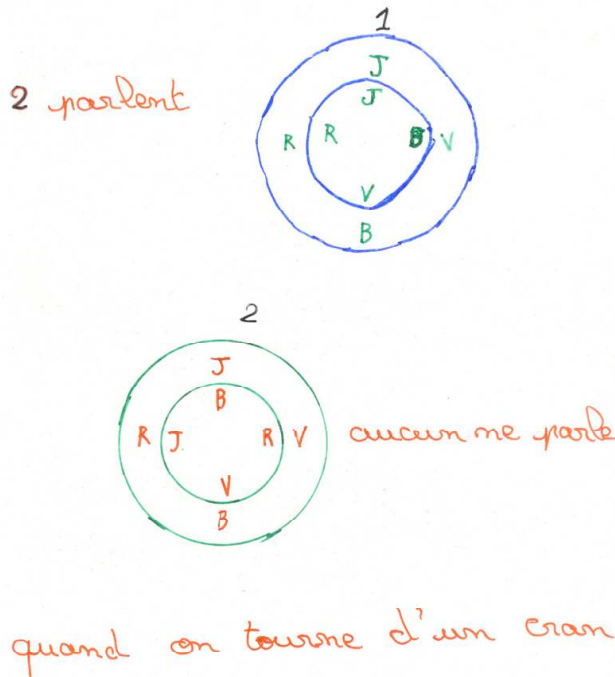 1
2 parlent
J
J
R R B V
V
B
2
J
B
R J R V aucun ne parle
V
B
quand on tourne d'un cran